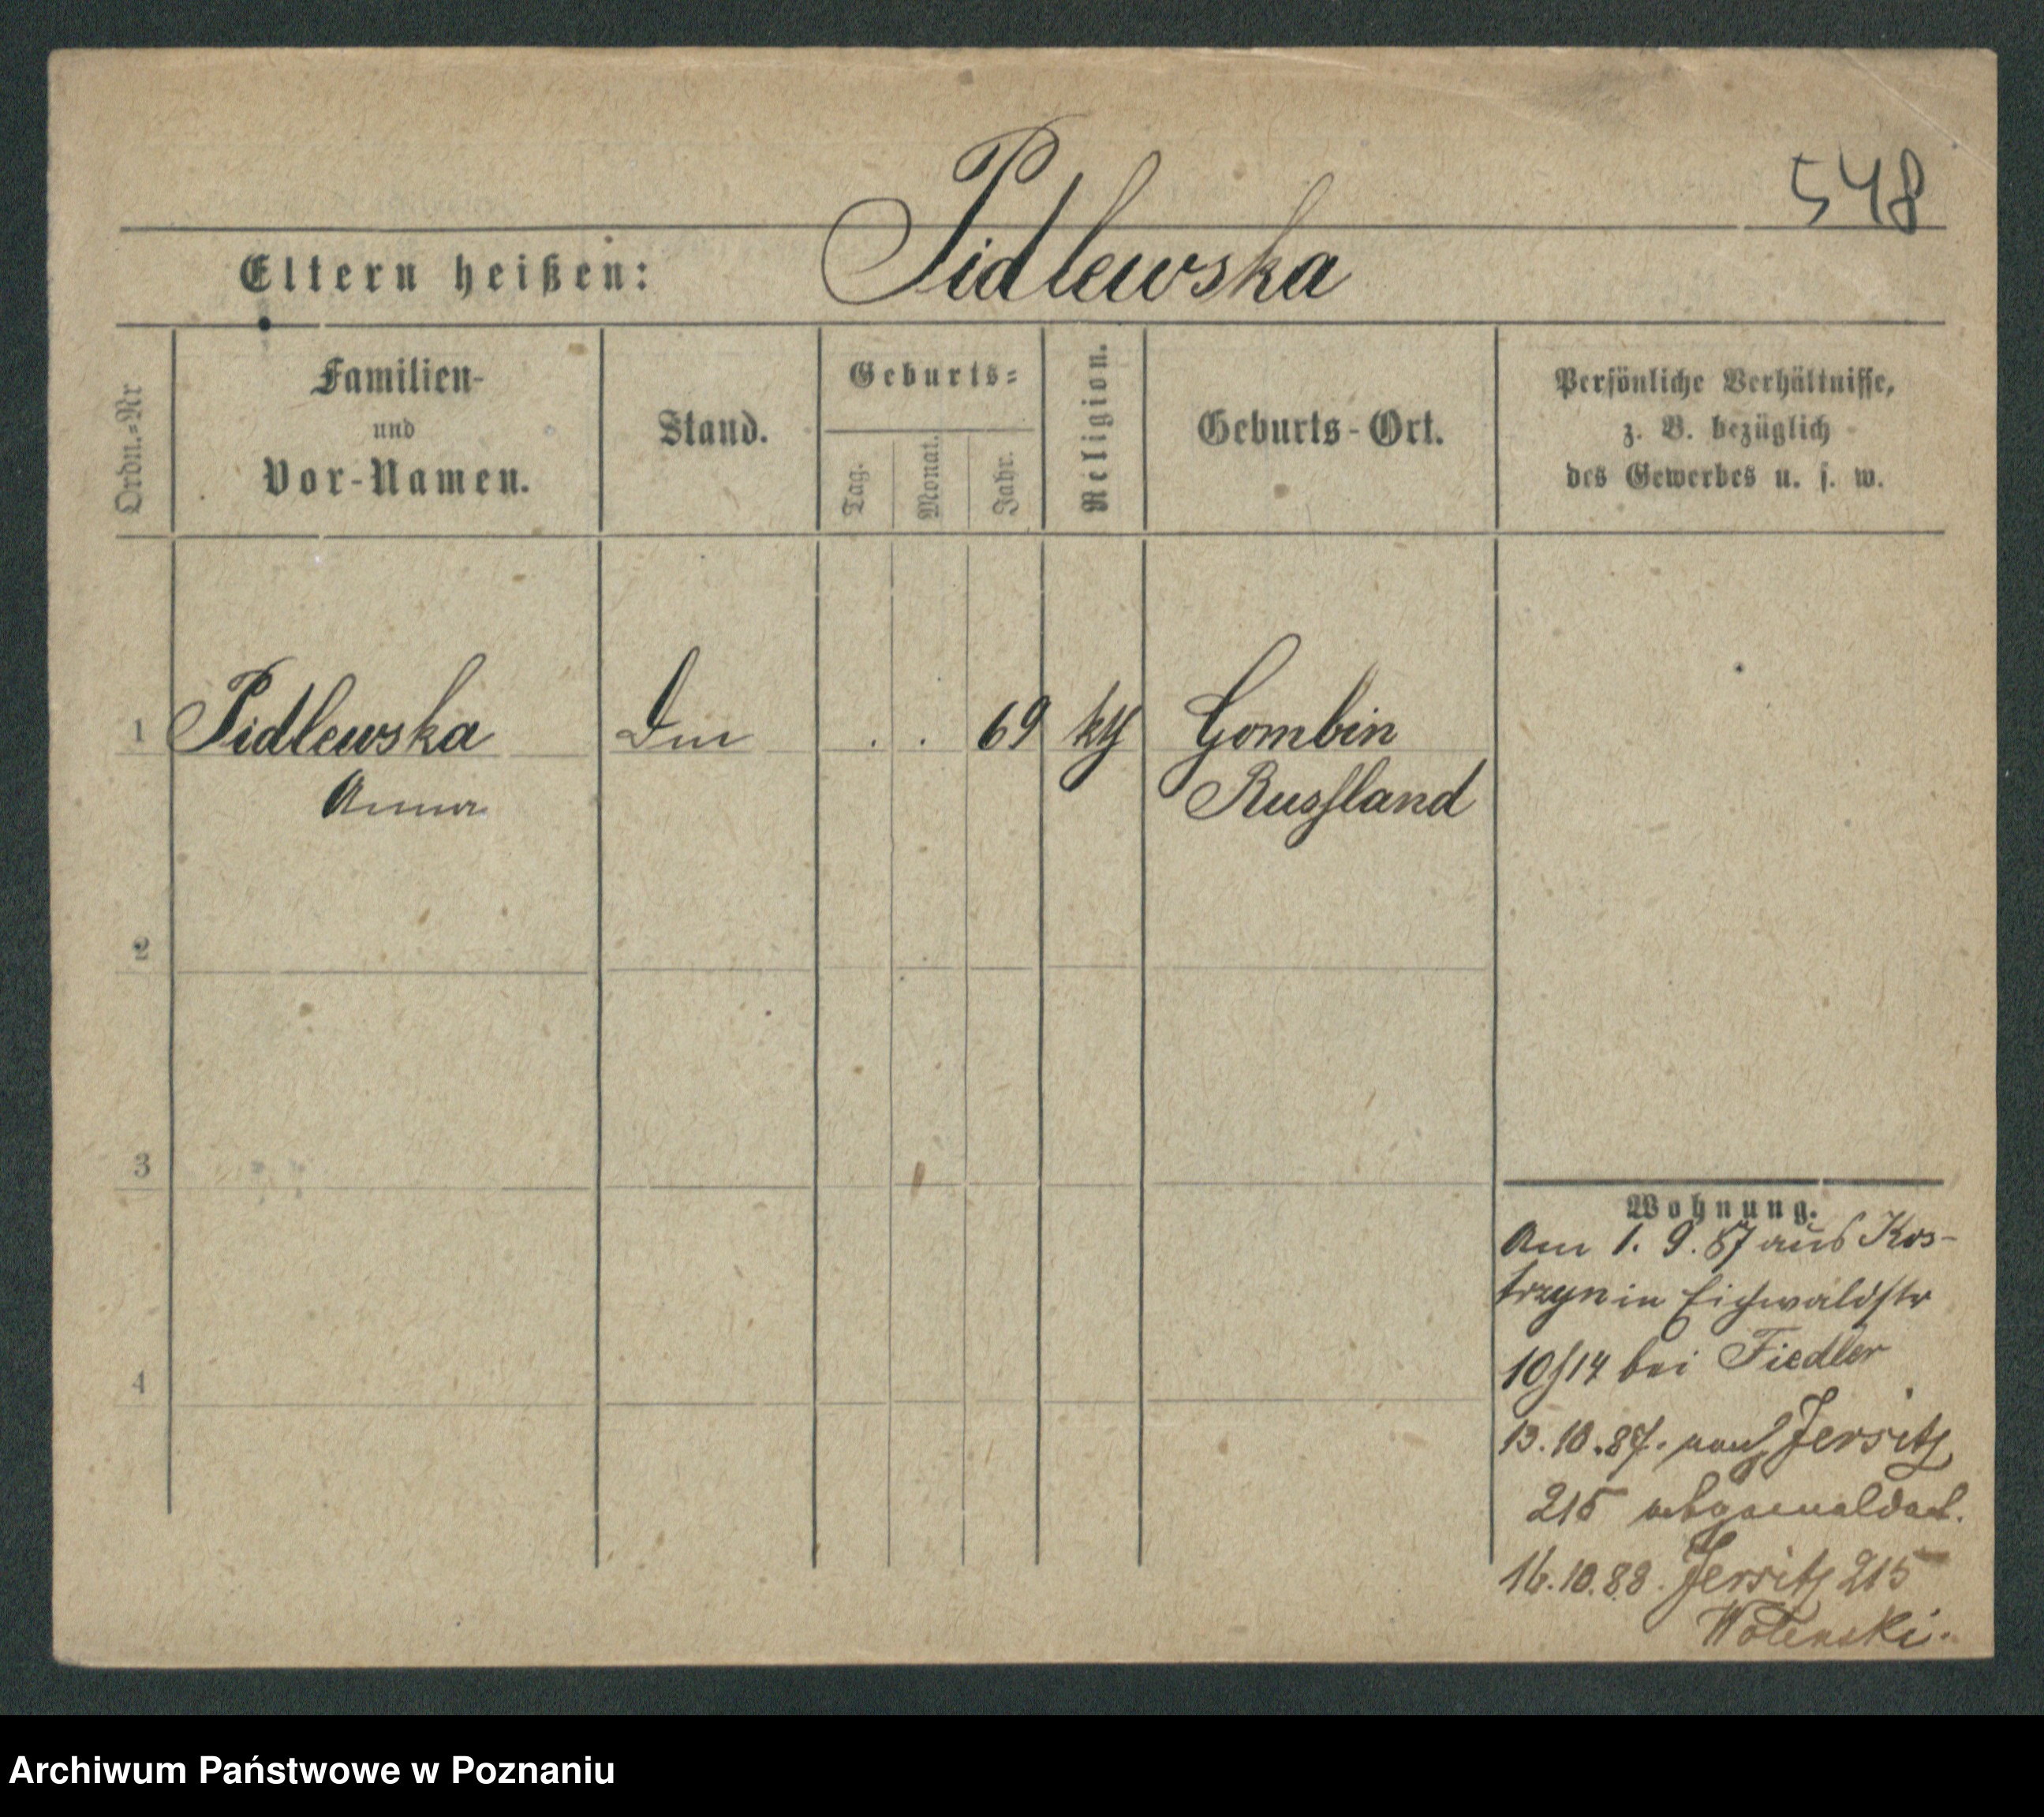 548
Eltern heißen: Pidlewska
Ordn.=Nr
Familien-
und
Vor-Namen.
Stand.
Geburts=
Tag.
Monat.
Jahr.
Religion.
Geburts-Ort.
Persönliche Verhältnisse,
z. B. bezüglich
des Gewerbes u. s. w.
1 Pidlewska . . 69 kth Gombin
Anna Russland
2
3
4
Wohnung.
Am 1. 9. 87 aus Kos-
trzyn in Eichwaldstr
10/14 bei Fiedler
13.10.87. nach Jersitz
215 abgemeldet.
16.10.88. Jersitz 215
Archiwum Państwowe w Poznaniu